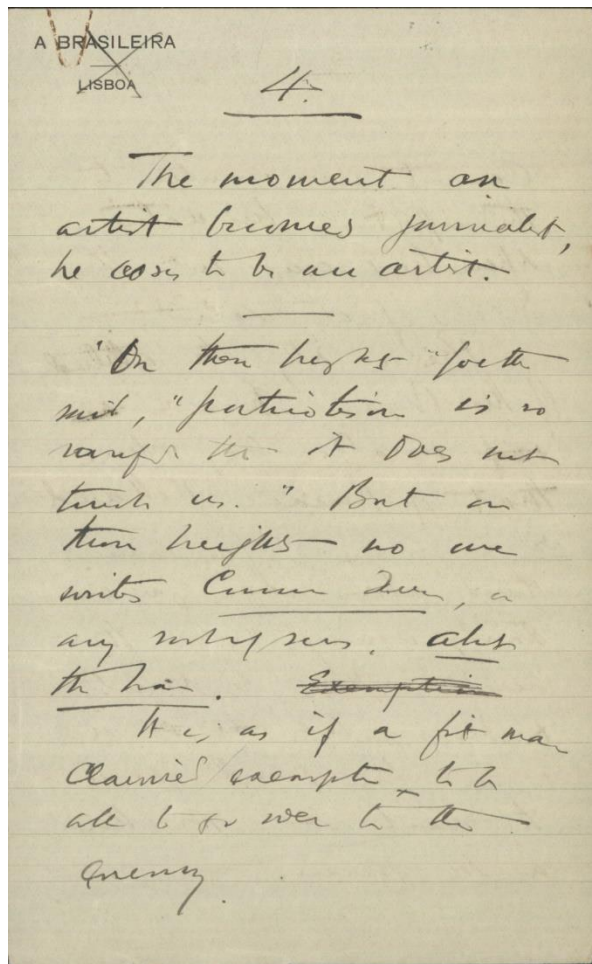 A BRASILEIRA
LISBOA
4.
The moment an
artist becomes journalist,
he ceases to be an artist.
"On these heights" Goethe
said, "patriotism is so
that it does not
touch us." But on
these heights no one
writes
any
Exemption
It is as if a fit man
claimed exemption to be
able to go over to the
enemy.